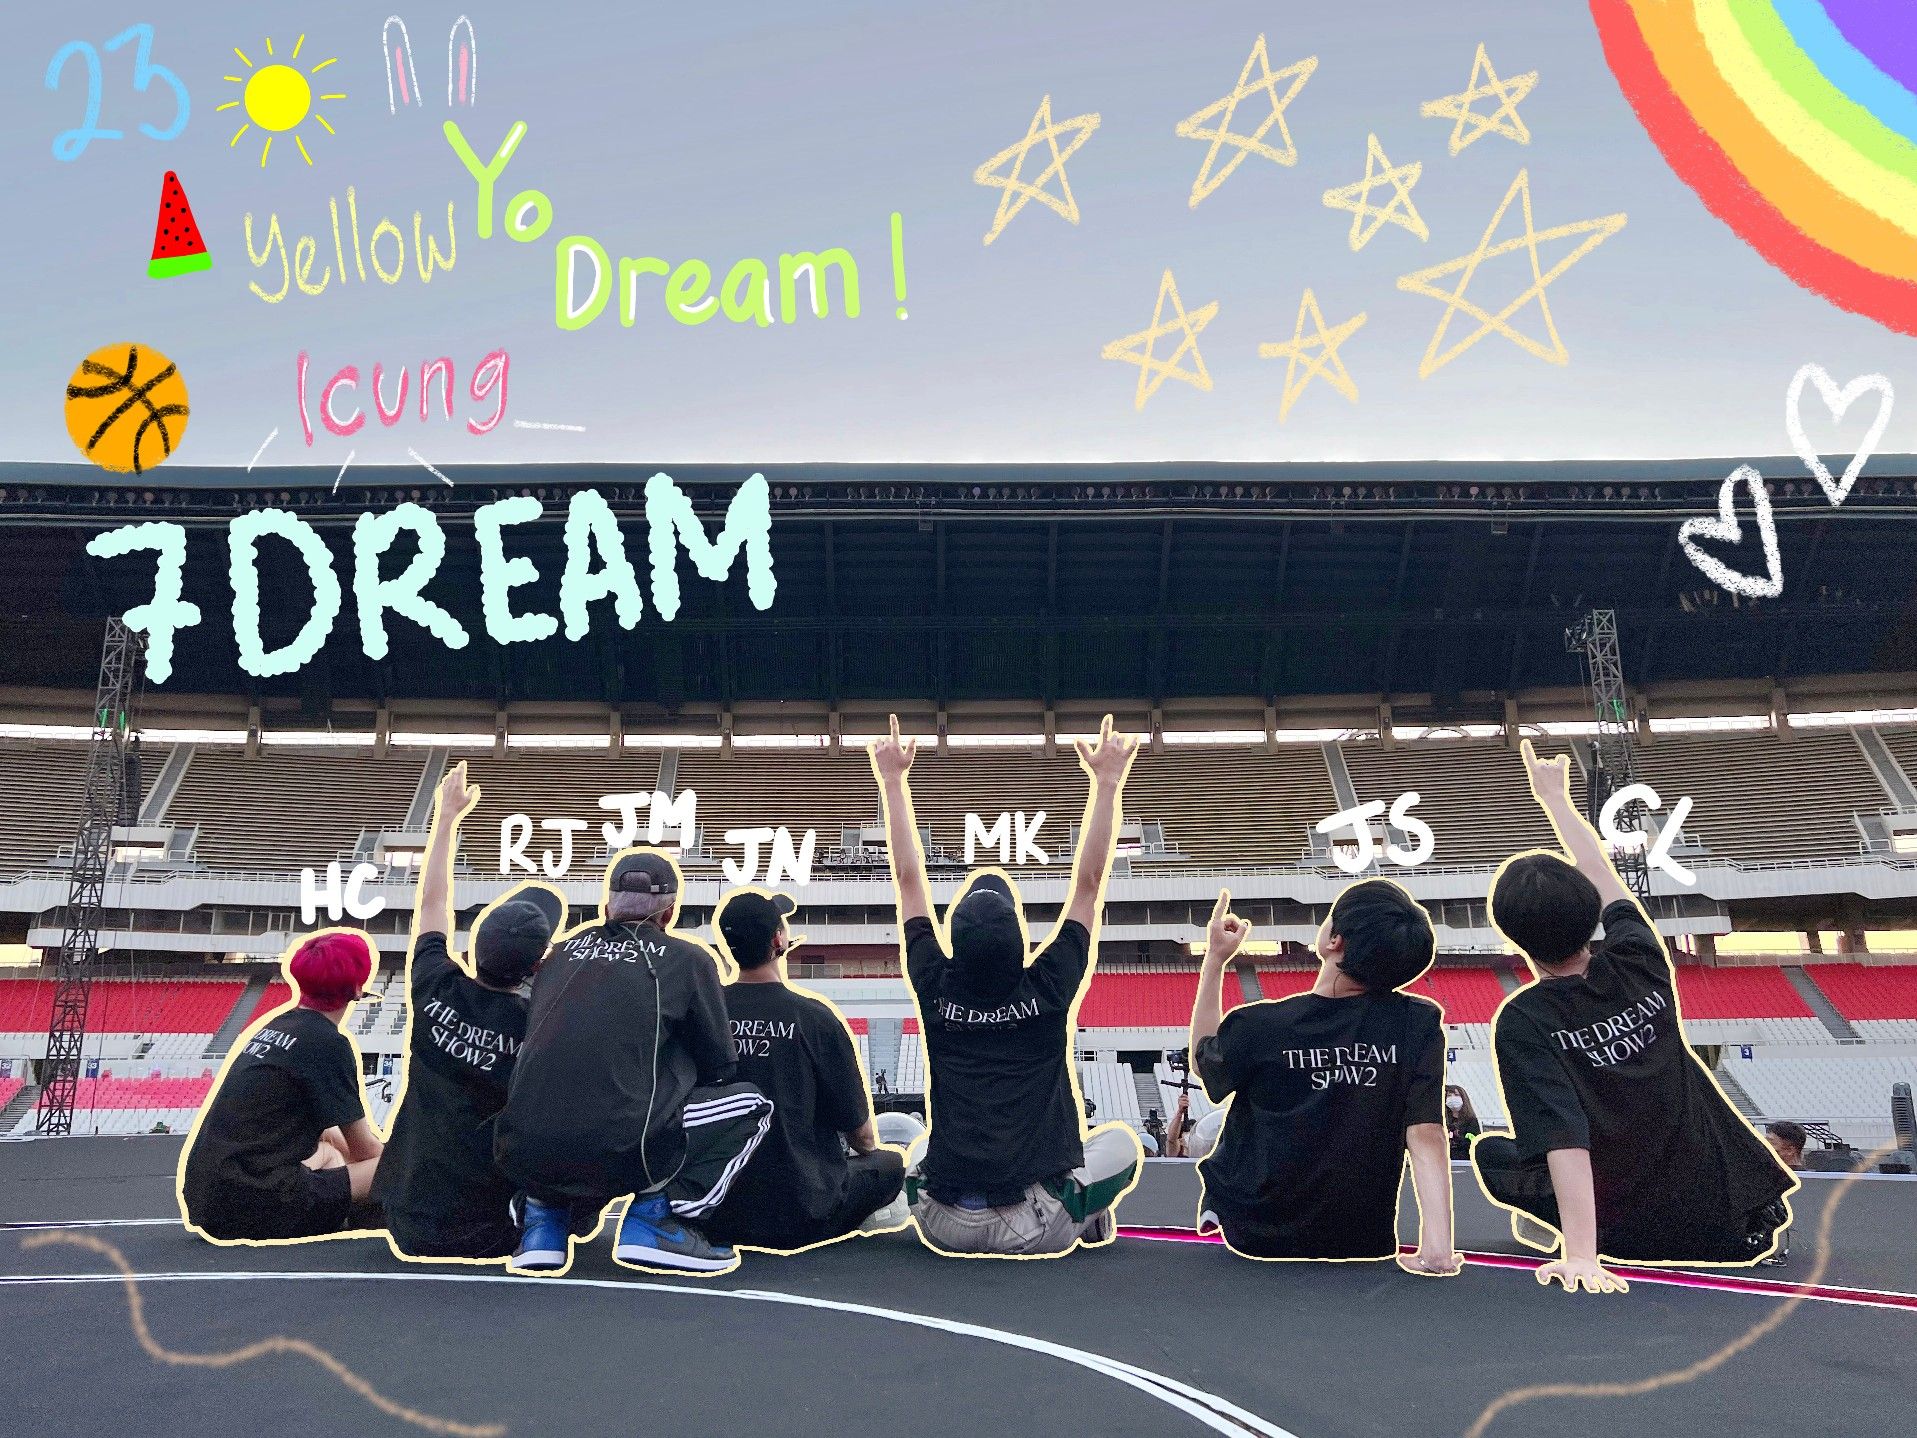 23
Yellow
Yo
Dream!
Icung
7DREAM
HC
RJ
JM
JN
MK
JS
CL
DREAM
OW2
THE DREAM
SHOW2
THE DREAM
SHOW2
DREAM
OW2
HE DREAM
SHOW2
THE DREAM
SHOW2
THE DREAM
SHOW2